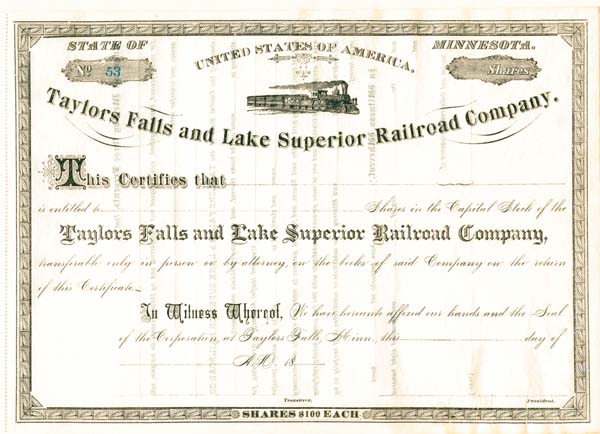 STATE OF
UNITED STATES OF AMERICA.
MINNESOTA.
No 53
Shares.
Taylors Falls and Lake Superior Railroad Company.
This Certifies that
is entitled to Shares in the Capital Stock of the
Taylors Falls and Lake Superior Railroad Company,
transferable only in person or by attorney, on the books of said Company on the return
of this Certificate.
In Witness Whereof, We have hereunto affixed our hands and the Seal
of the Corporation, at Taylors Falls, Minn, this day of
A.D. 18
Treasurer.
President.
SHARES $100 EACH